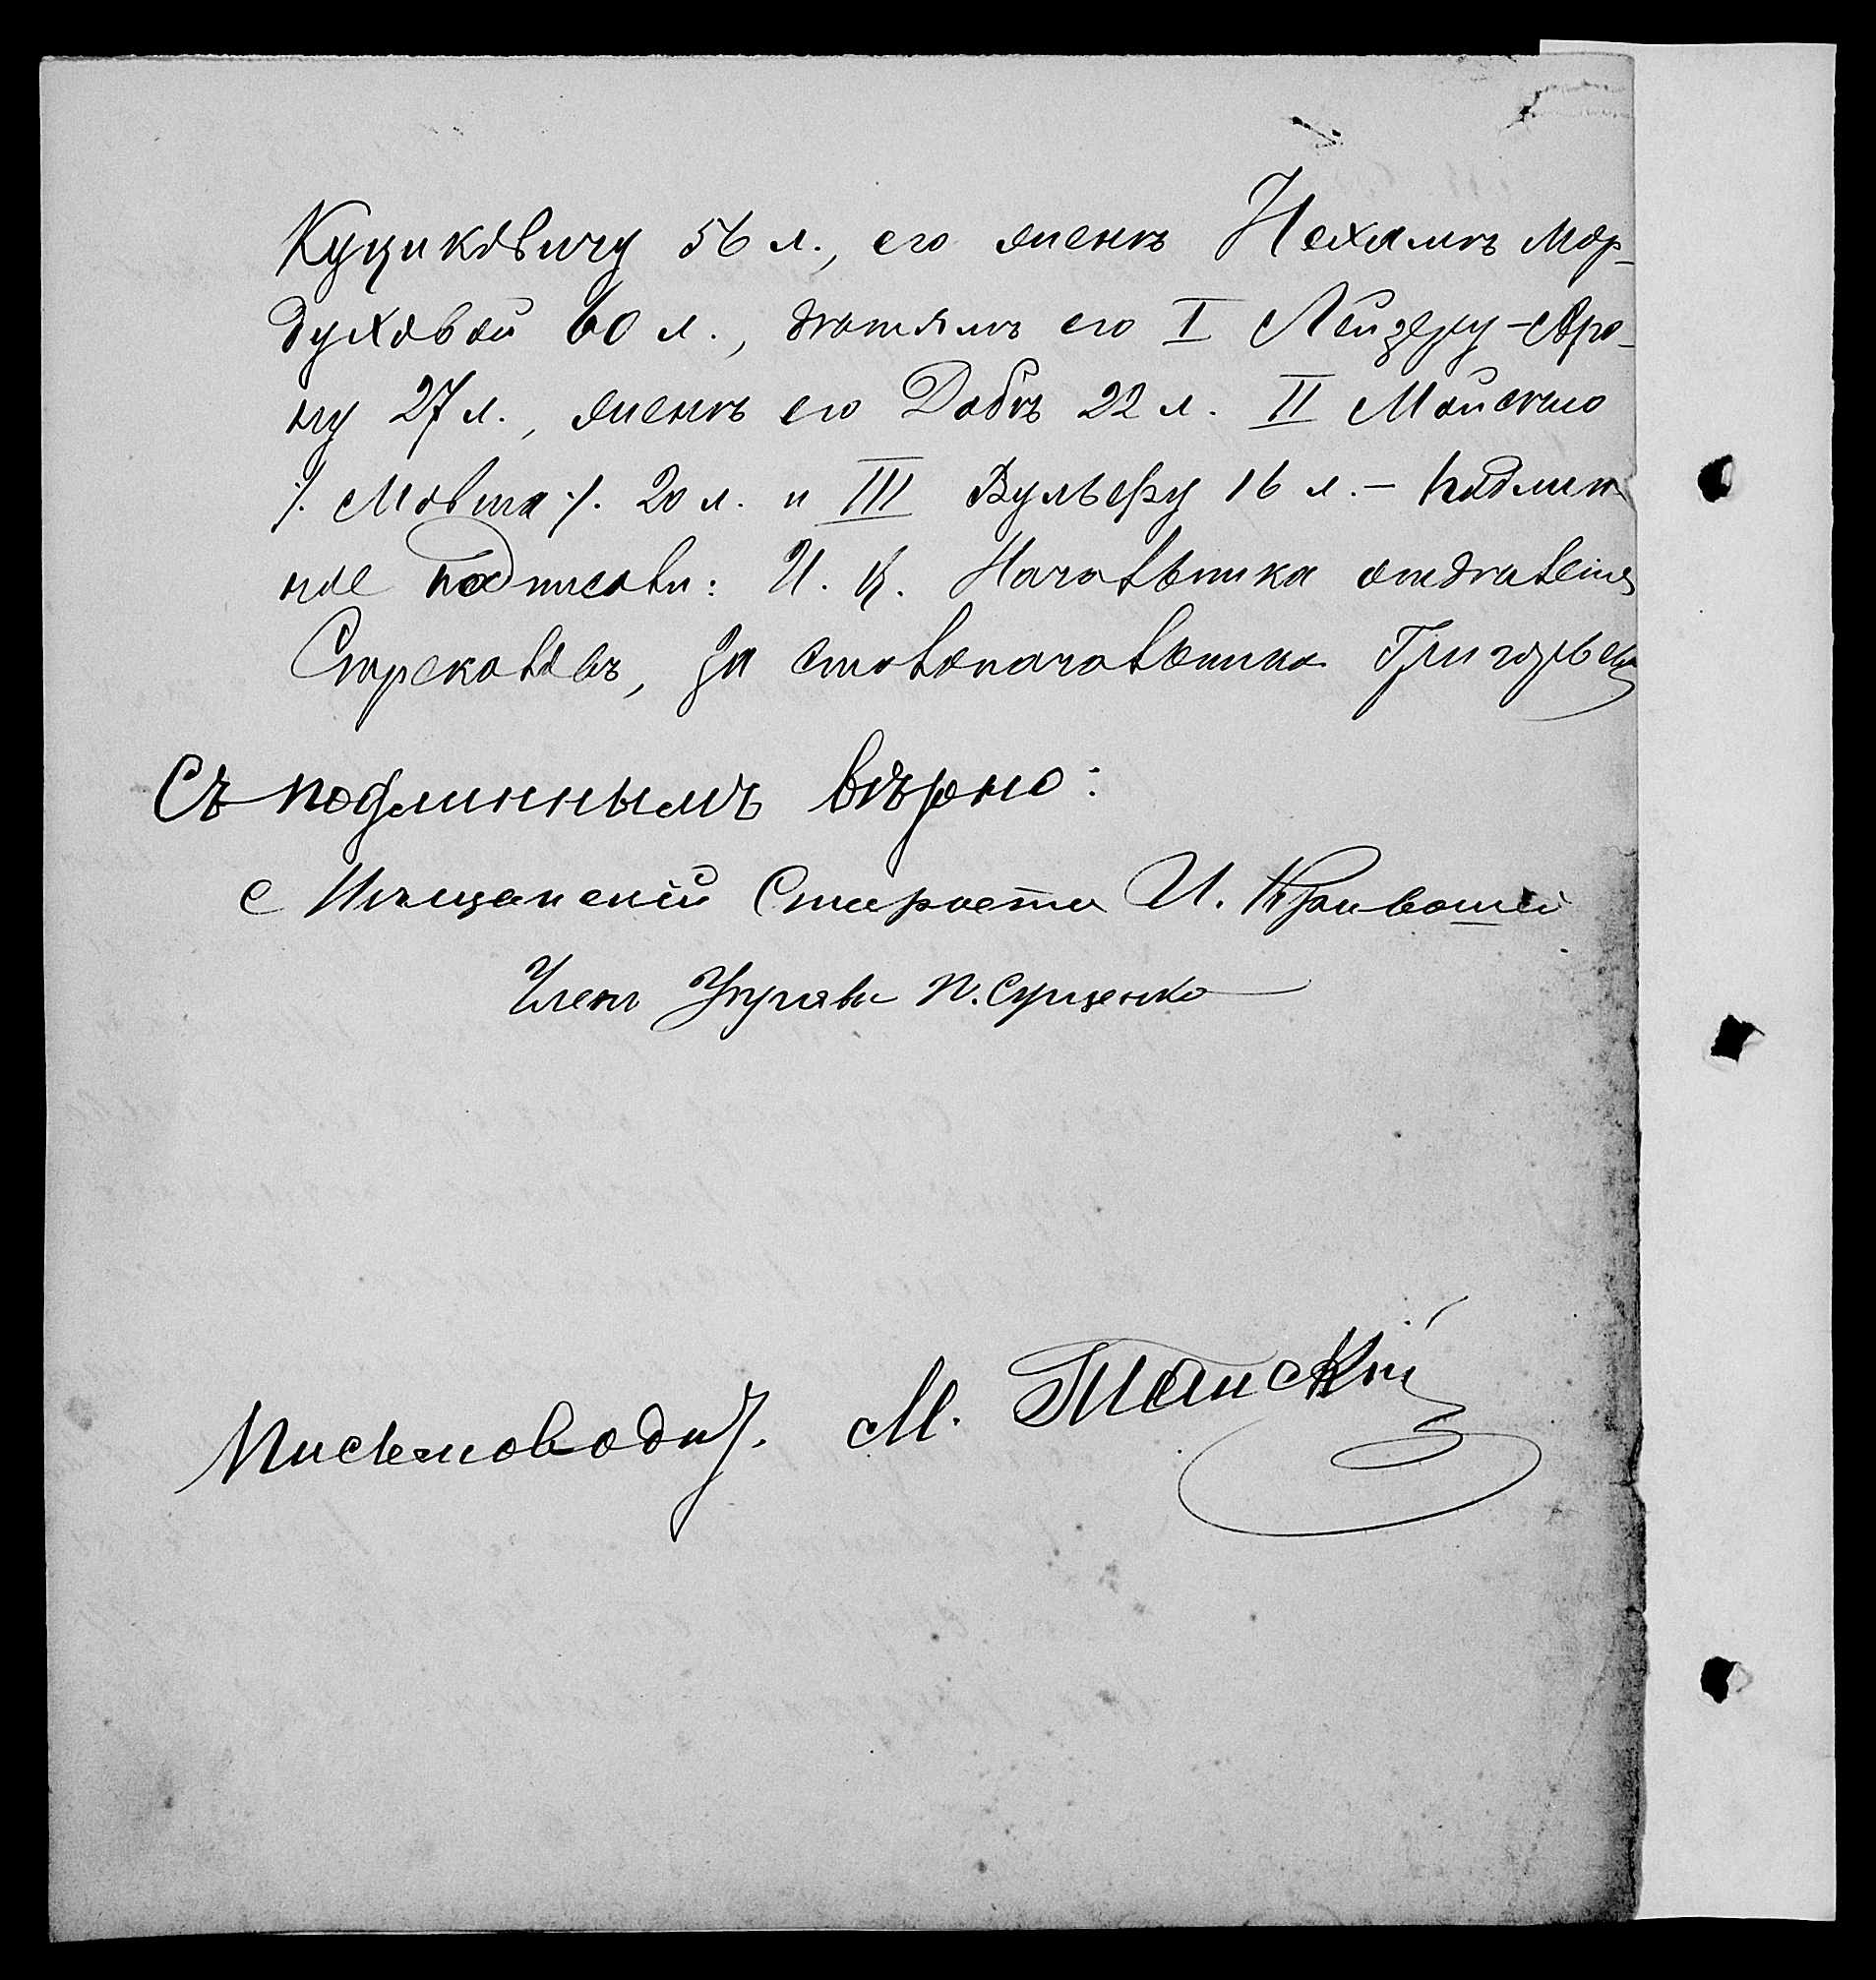 Куциковичу 56 л., его женѣ Нехамѣ Мор-
духовой 60 л., дѣтямъ его I Лейзеру-Аро-
ну 27 л., женѣ его Добѣ 22 л. II Мойсею
/. Мовша ./. 20 л. и III Вульфу 16 л. – Подлин
ное подписали: И. д. Начальника отдѣленія
Стрекаловъ, За столоначальника Григорьевъ
Съ подлиннымъ вѣрно:
Мѣщанскій Староста И. Кривошей
Членъ Управы П. Сущенко
Письмоводит. М. Танскій